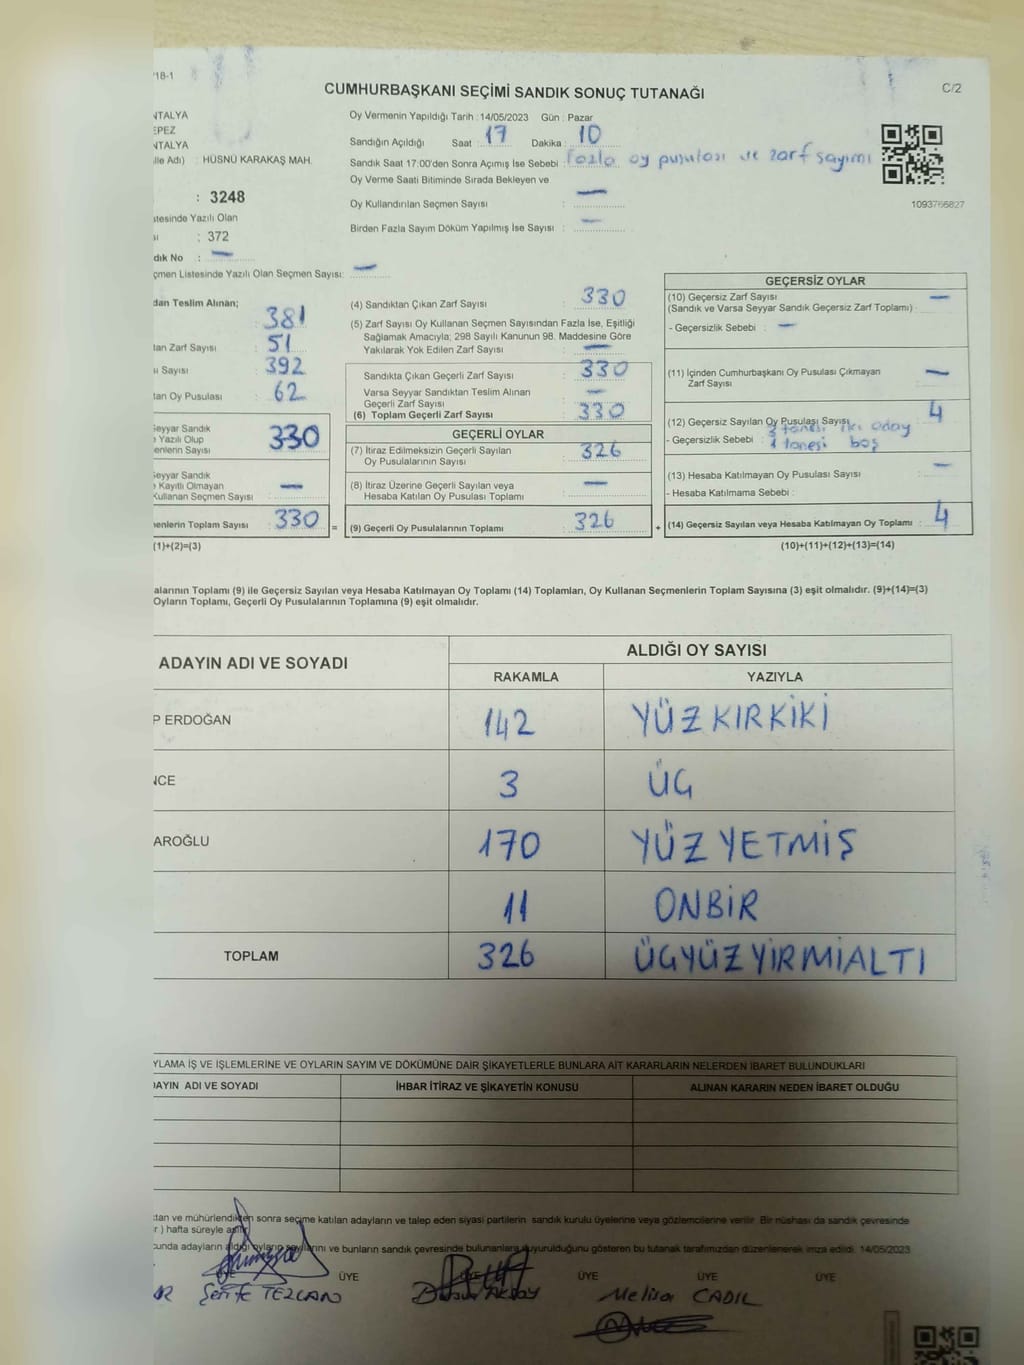 718-1
C/2
CUMHURBAŞKANI SEÇİMİ SANDIK SONUÇ TUTANAĞI
NTALYA
EPEZ
NTALYA
lle Adı) : HÜSNÜ KARAKAŞ MAH.
: 3248
stesinde Yazılı Olan
: 372
dık No : —
çmen Listesinde Yazılı Olan Seçmen Sayısı: —
Oy Vermenin Yapıldığı Tarih : 14/05/2023 Gün : Pazar
Sandığın Açıldığı Saat : 17 Dakika : 10
Sandık Saat 17:00'den Sonra Açımış İse Sebebi : Fazla oy pusulası ve zarf sayımı
Oy Verme Saati Bitiminde Sırada Bekleyen ve
Oy Kullandırılan Seçmen Sayısı : —
Birden Fazla Sayım Döküm Yapılmış İse Sayısı : —
1093766827
dan Teslim Alınan;
381
tan Zarf Sayısı 51
ı Sayısı 392
tan Oy Pusulası 62
Seyyar Sandık
Yazılı Olup
enlerin Sayısı 330
Seyyar Sandık
Kayıtlı Olmayan
Kullanan Seçmen Sayısı : —
nenlerin Toplam Sayısı 330 =
(1)+(2)=(3)
(4) Sandıktan Çıkan Zarf Sayısı : 330
(5) Zarf Sayısı Oy Kullanan Seçmen Sayısından Fazla İse, Eşitliği
Sağlamak Amacıyla; 298 Sayılı Kanunun 98. Maddesine Göre
Yakılarak Yok Edilen Zarf Sayısı : —
Sandıkta Çıkan Geçerli Zarf Sayısı : 330
Varsa Seyyar Sandıktan Teslim Alınan
Geçerli Zarf Sayısı : —
(6) Toplam Geçerli Zarf Sayısı : 330
GEÇERLİ OYLAR
(7) İtiraz Edilmeksizin Geçerli Sayılan
Oy Pusulalarının Sayısı : 326
(8) İtiraz Üzerine Geçerli Sayılan veya
Hesaba Katılan Oy Pusulası Toplamı : —
(9) Geçerli Oy Pusulalarının Toplamı : 326 +
GEÇERSİZ OYLAR
(10) Geçersiz Zarf Sayısı —
(Sandık ve Varsa Seyyar Sandık Geçersiz Zarf Toplamı) :
- Geçersizlik Sebebi : —
(11) İçinden Cumhurbaşkanı Oy Pusulası Çıkmayan
Zarf Sayısı : —
(12) Geçersiz Sayılan Oy Pusulası Sayısı : 4
- Geçersizlik Sebebi : 3 tanesi iki aday
1 tanesi boş
(13) Hesaba Katılmayan Oy Pusulası Sayısı : —
- Hesaba Katılmama Sebebi :
(14) Geçersiz Sayılan veya Hesaba Katılmayan Oy Toplamı : 4
(10)+(11)+(12)+(13)=(14)
alarının Toplamı (9) ile Geçersiz Sayılan veya Hesaba Katılmayan Oy Toplamı (14) Toplamları, Oy Kullanan Seçmenlerin Toplam Sayısına (3) eşit olmalıdır. (9)+(14)=(3)
Oyların Toplamı, Geçerli Oy Pusulalarının Toplamına (9) eşit olmalıdır.
ADAYIN ADI VE SOYADI
ALDIĞI OY SAYISI
RAKAMLA YAZIYLA
P ERDOĞAN 142 YÜZ KIRKİKİ
NCE 3 ÜÇ
AROĞLU 170 YÜZ YETMİŞ
11 ONBİR
TOPLAM 326 ÜÇYÜZ YİRMİALTI
YLAMA İŞ VE İŞLEMLERİNE VE OYLARIN SAYIM VE DÖKÜMÜNE DAİR ŞİKAYETLERLE BUNLARA AİT KARARLARIN NELERDEN İBARET BULUNDUKLARI
DAYIN ADI VE SOYADI İHBAR İTİRAZ VE ŞİKAYETİN KONUSU ALINAN KARARIN NEDEN İBARET OLDUĞU
tan ve mühürlendikten sonra seçime katılan adayların ve talep eden siyasi partilerin sandık kurulu üyelerine veya gözlemcilerine verilir. Bir nüshası da sandık çevresinde
r ) hafta süreyle asılır.
cunda adayların aldığı oyların sayılarını ve bunların sandık çevresinde bulunanlara duyurulduğunu gösteren bu tutanak tarafımızdan düzenlenerek imza edildi. 14/05/2023
ÜYE ÜYE ÜYE ÜYE ÜYE
Şerife TEZCAN
Melisa CADIL